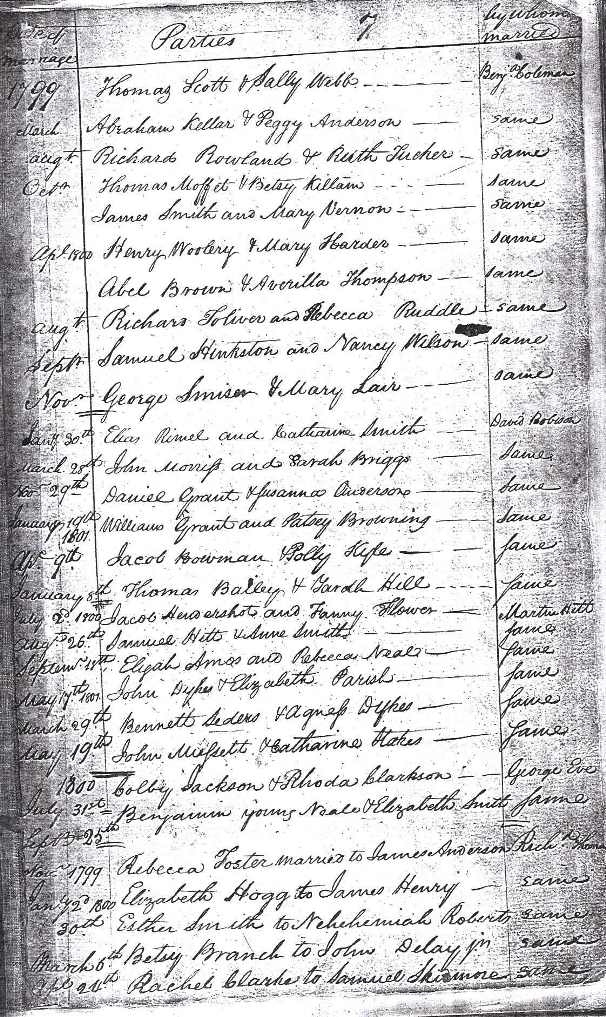 Date of marriage Parties 7 by whom married
1799 Thomas Scott & Sally Webb Benj. Coleman
March Abraham Kellar & Peggy Anderson same
augt. Richard Rowland & Ruth Tucker same
Octr. Thomas Moffet & Betsy Killam same
James Smith and Mary Vernon same
Apl. 1800 Henry Woolery & Mary Harder same
Abel Brown & Averilla Thompson same
augt. Richard Toliver and Rebecca Ruddle same
Septr. Samuel Hinkston and Nancy Wilson same
Novr. George Smiser & Mary Lair same
Jany. 30th Elias Rimel and Catharine Smith David
March 28th John Morriss and Sarah Briggs Same
Nov. 29th Daniel Grant & Susanna Anderson Same
January 19th 1801 William Grant and Patsey Browning Same
Apr. 9th Jacob Bowman & Polly Same
January 8th Thomas Bailey & Sarah Hill Same
July 2d. 1800 Jacob Hendershot and Fanny Flower Martin Hitt
Augt. 26th Samuel Hitt & Anne Smith Same
Septemr. 18th Elijah Amos and Rebecca Neale Same
May 17th 1801 John Dykes & Elizabeth Parish Same
March 29th Bennett & Agness Dykes Same
May 19th John & Catharine Same
1800 Colby Jackson & Rhoda Clarkson George Eve
July 31st Benjamin young Neale & Elizabeth Smith Same
Sept. 25th
Novr. 1799 Rebecca Foster married to James Anderson Richd. Thomas
Jany. 2d 1800 Elizabeth Hogg to James Henry same
30th Esther Smith to Nehehemiah Roberts same
March 6th Betsy Branch to John Delay jn same
Apl. 24th Rachel Clarke to Samuel Skidmore same